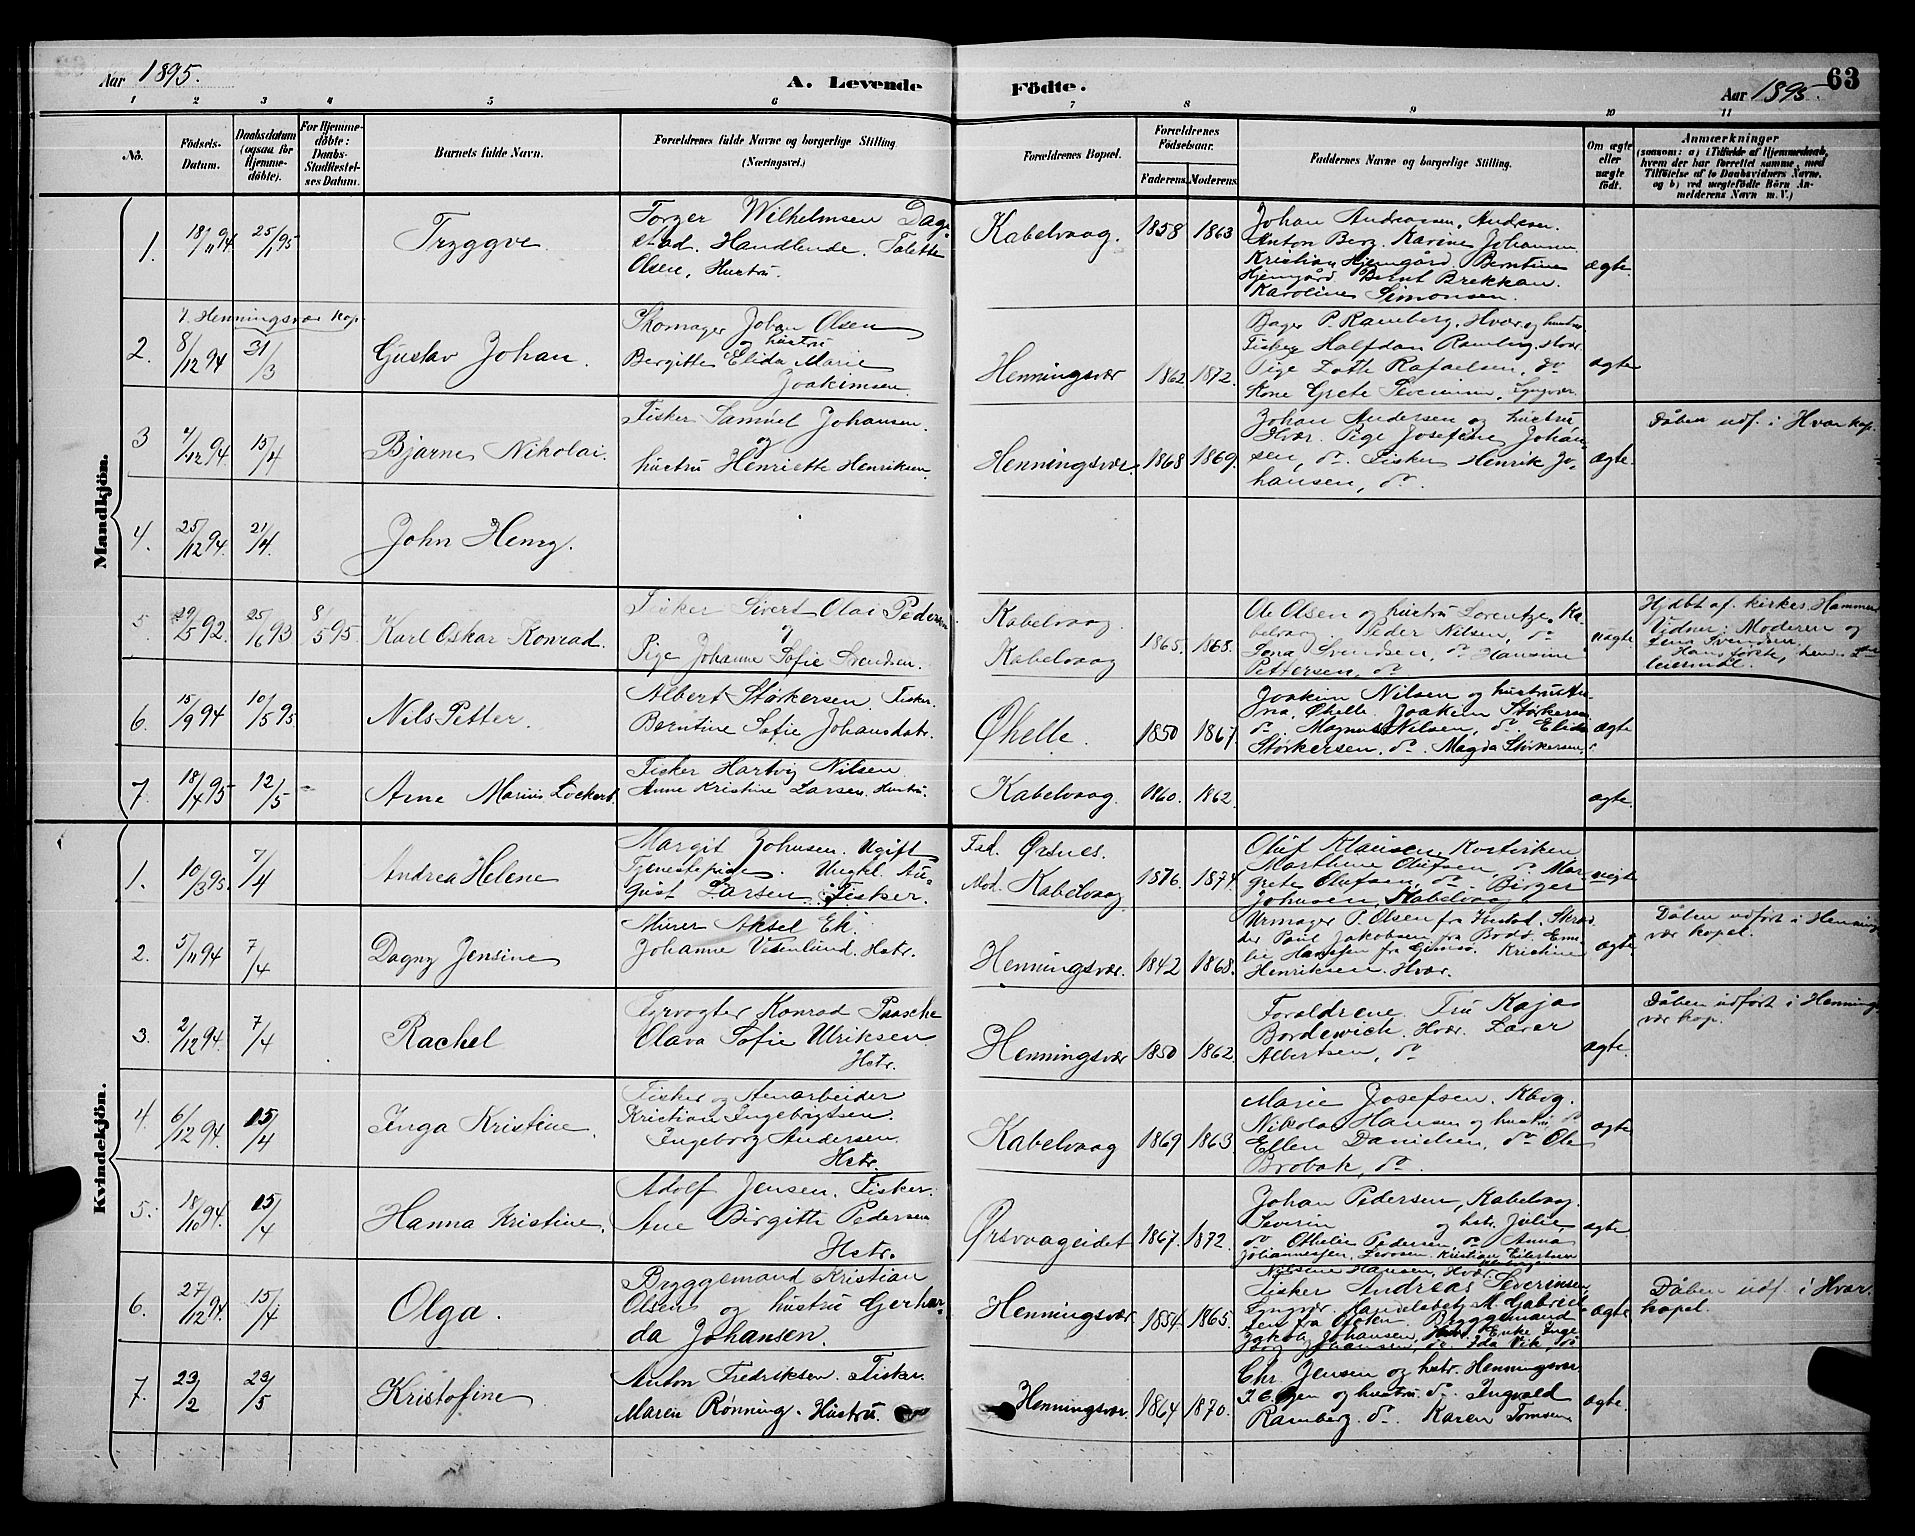 Aar 1895.
A. Levende
Födte.
Aar 1895.
63
1 2 3 4 5 6 7 8 9 10 11
No.
Födsels-Datum.
Daabsdatum (ogsaa for Hjemme-döbte).
For Hjemme-döbte: Daabs-Stadfæstel-ses Datum.
Barnets fulde Navn.
Forældrenes fulde Navne og borgerlige Stilling (Næringsvei.)
Forældrenes Bopæl.
Forældrenes Födselsaar.
Faderens. Moderens.
Faddernes Navne og borgerlige Stilling.
Om ægte eller uægte födt.
Anmærkninger
(saasom: a) i Tilfælde af Hjemmedaab,
hvem der har forrettet samme, med
Tilföielse af to Daabsvidners Navne.
og b) ved uægtefödte Börn An-
melderens Navn m. V.)
Mandkjön.
1. 18/11 94 25/1 95
Tryggve
Torger Wilhelmsen Dag-
stad. Handlende. Talette
Olsen, Hustru.
Kabelvaag. 1858 1863
Johan Andreassen,
Anton Berg. Karine Johansen
Kristian Hjemgård Berntine
Hjemgård Bernt Brekkan.
Karoline Simonsen.
ægte.
I Henningsvær Kap.
2. 8/12 94 31/3
Gustav Johan.
Skomager Johan Olsen
og hustru
Bergitte Elida Marie
Joakimsen
Henningsvær 1862 1872.
Bager P. Ramberg, Hvær og hustru
Fisker Halfdan Ramberg, Hvær.
Pige Lotte Rafaelsen, do
Kone Grete Lyngvær.
ægte
3 /12 94. 15/4
Bjarne Nikolai.
Fisker Samuel Johansen.
og
hustru Henriette Henriksen
Henningsvær. 1868 1869.
Johan Andersen og hustru,
Hvær. Pige Josefine Johan-
sen, do. Fisker Henrik Jo-
hansen, do.
ægte.
Dåben udf. i Hvær kap.
4. 25/12 94. 21/4
John Henry.
5. 29/5 92. 25/6 93 8/5 95.
Karl Oskar Konrad.
Fisker Sivert Olai Pedersen
og
Pige Johanne Sofie Svendsen.
Kabelvaag
Kabelvaag
1865. 1868.
Ole Olsen og hustru Lorentze, Ka-
belvaag Peder Nilsen, do
Jona Svendsen, do Hansine
Pettersen, do
uægte.
Hjdbt af kirkes. Hammer
Vidner: Moderen og
Jens Svendsen
6. 15/9 94 10/5 95
Nils Petter.
Albert Størkersen, Fisker.
Berntine Sofie Johansdatr.
Ørhelle. 1850 1867.
Joakim Nilsen og hustru
Joakim Størkersen
do. Magnus Nilsen, do. Elida
Størkersen, do. Magda Størkersen,
ægte
7. 18/4 95 12/5 -
Arne Marius Lockert.
Fisker Hartvig Nilsen
Anne Kristine Larsen. Hustru.
Kabelvaag. 1860. 1862.
ægte.
Kvindekjön.
1. 10/3 95. 7/4
Andrea Helene
Margit Johnsen. Ugift
Tjenestepige. Ungkl. Au-
gust Larsen, Fisker.
Fad. Ørsnes.
Mod. Kabelvaag
1876. 1874.
Oluf Klausen,
Marthine Olufsen, do. Mar-
grete Olufsen, do. Birger
Johnsen, Kabelvaag
uegte
2. 5/11 94 7/4
Dagny Jensine
Murer Aksel Ek.
Johanne Vesenlund. Hstr.
Henningsvær. 1842 1868.
Urmager P. Olsen fra Skræd-
der Paul Jakobsen fra Bodø.
Hansen fra Gimsø. Kristine
Henriksen. Hvær.
ægte
Dåben udført i Hennings-
vær kapel.
3. 2/12 94. 7/4
Rachel
Fyrvogter Konrad Paasche
Olava Sofie Ulriksen.
Hstr.
Henningsvær 1850 1862.
Forældrene. Fru Kaja
Bordewich. Hvær. Lærer
Albertsen, do
ægte.
Dåben udført i Hennings-
vær kap.
4. 6/12 94. 15/4
Inga Kristine.
Fisker og Anarbeider
Kristian Ingebrigtsen
Ingeborg Andersen.
Hstr.
Kabelvaag 1869 1863
Marie Josefsen. Kbvg.
Nikolai Hansen og hustru, do
Ellen Danielsen, do Ole
Brobak, do
ægte
5. 18/10 94. 15/4
Hanna Kristine.
Adolf Jensen. Fisker.
Ane Birgitte Pedersen
Hstr.
Ørsvaageidet 1867. 1872.
Johan Pedersen, Kabelvaag.
Severin og hstr. Julie,
do Othelie Pedersen, do Anna
Johannessen, Kristian Eilertsen
ægte.
6. 27/12 94. 15/4
Olga.
Bryggemand Kristian
Olsen og hustru Gerhar-
da Johansen.
Henningsvær 1854 1865.
Nilsine Hansen, Hvær.
Fisker Andreas Severinsen,
Lyngvær. Handelsbetj. M. Gabriel-
sen fra Bryggemand
Jakob Johansen, Hvær. Enke Inge-
borg Johansen, do. Ida Vik, do
ægte
Dåben udf. i Hvær
kapel.
7. 23/2 23/5
Kristofine
Anton Fredriksen. Fisker.
Maren Rönning. Hustru.
Henningsvær. 1864 1870.
Chr. Jensen og hstr. Henningsvær
og hustru do. Ingvald
Ramberg do. Karen Tomsen
ægte.